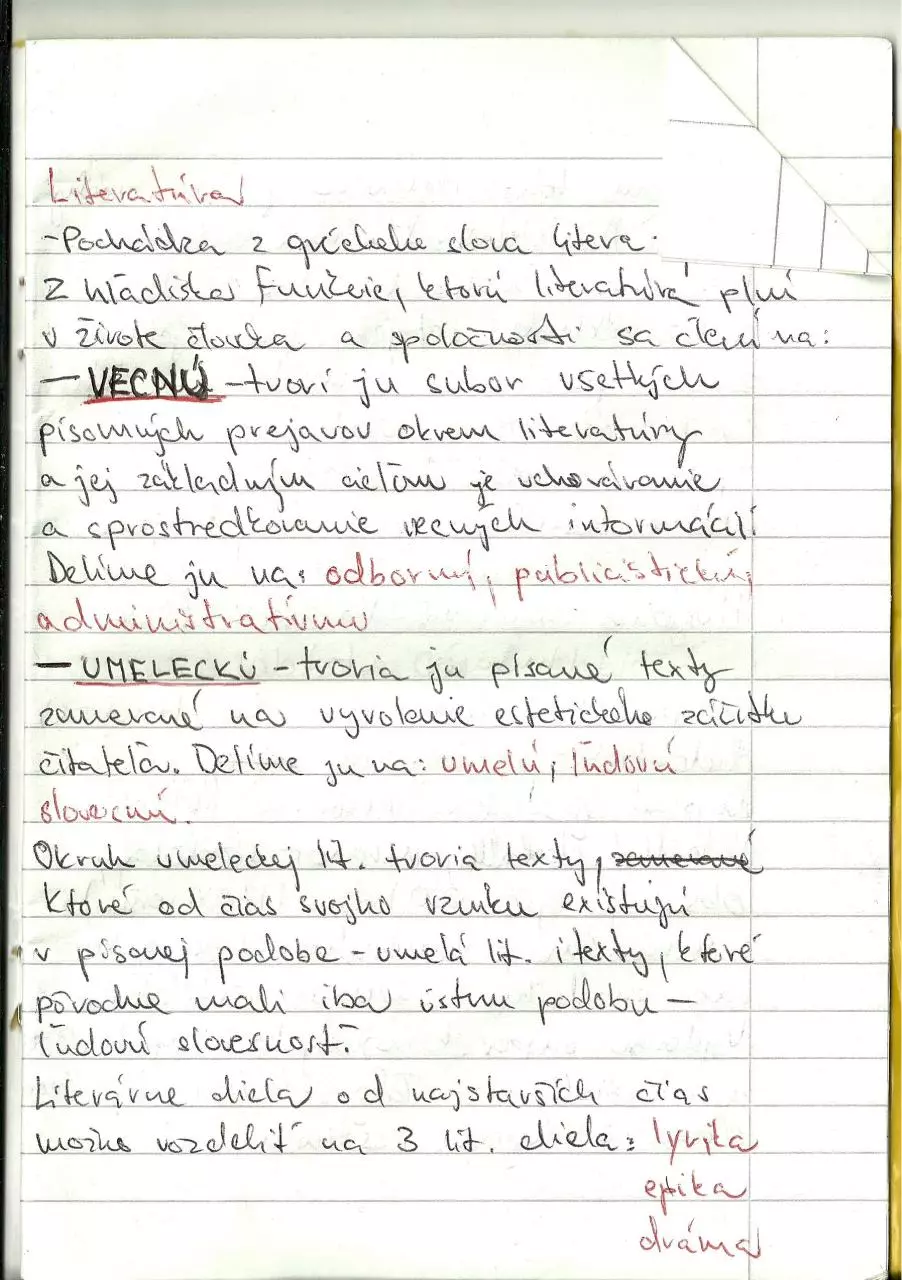 Literatúra
-Pochádza z gréckeho slova litera.
Z hľadiska funkcie, ktorú literatúra plní
v živote človeka a spoločnosti sa člení na:
— VECNÚ - tvorí ju subor vsetkých
písomných prejavov okrem literatúry
a jej základným cieľom je uchovávanie
a sprostredkovanie vecných informácií.
Delíme ju na: odbornú, publicistickú,
administratívnu
— UMELECKÚ - tvoria ju písané texty
zamerané na vyvolanie estetického zážitku
čitateľa. Delíme ju na: umelú, ľudovú
slovesnú.
Okruh umeleckej lit. tvoria texty, zamerané
Ktoré od čias svojho vzniku existujú
v písanej podobe - umelá lit. i texty, ktoré
pôvodne mali iba ústnu podobu —
ľudovú slovesnosť.
Literárne diela od najstarších čias
možno rozdeliť na 3 lit. diela: lyrika
epika
dráma